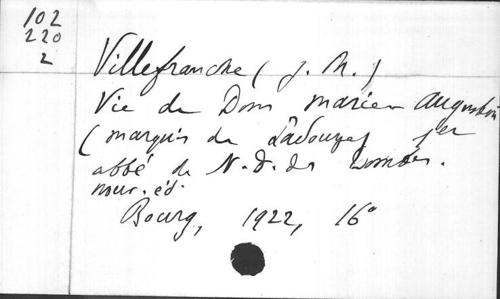 102
220
2
Villefranche (J. M.)
Vie de Dom Marie Augustin
(marquis de Ladouze) 1er
abbé de N.-D. des Dombes.
nouv. éd.
Bourg, 1922, 16°